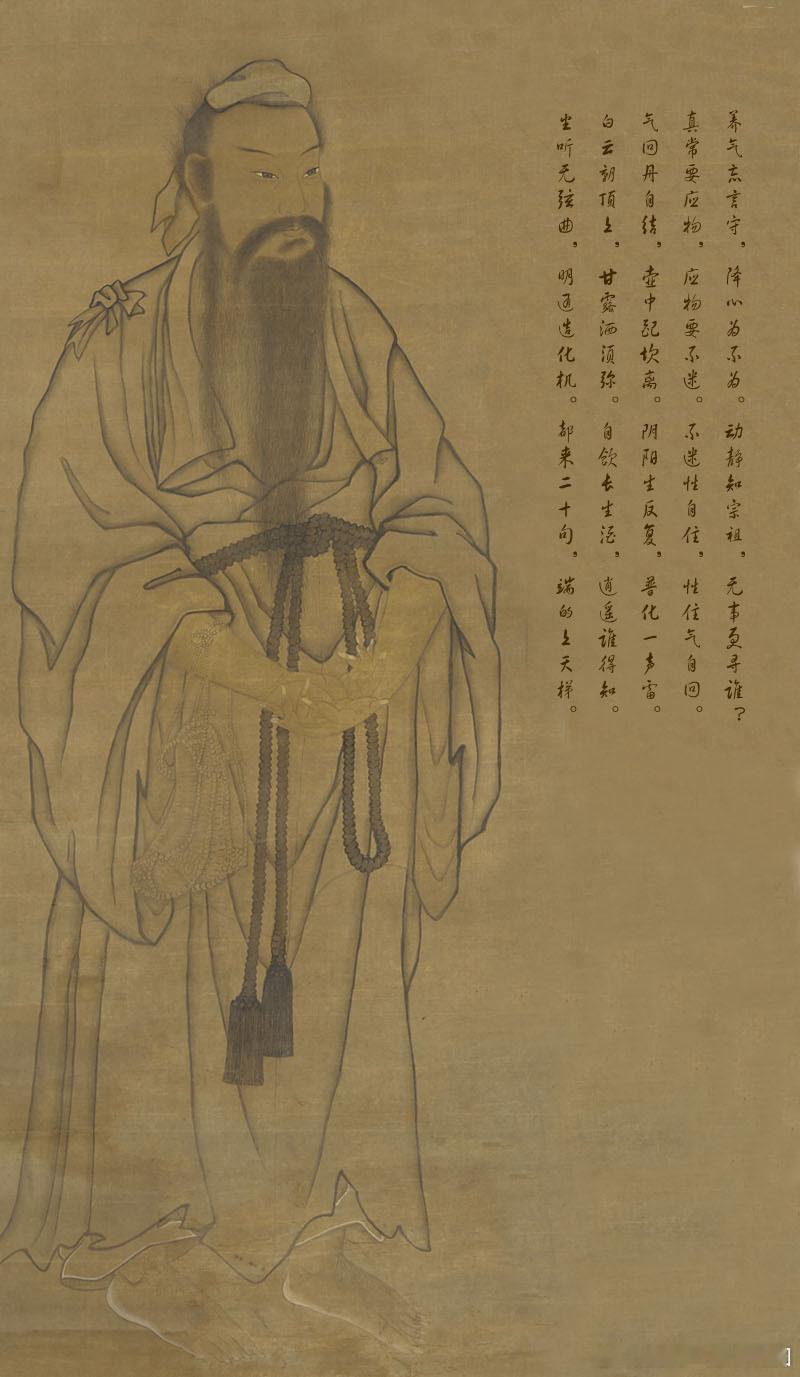 养气忘言守，降心为不为。动静知宗祖，无事更寻谁？
真常要应物，应物要不迷。不迷性自住，性住气自回。
气回丹自结，壶中配坎离。阴阳生反复，普化一声雷。
白云朝顶上，甘露洒须弥。自饮长生酒，逍遥谁得知。
坐听无弦曲，明通造化机。都来二十句，端的上天梯。